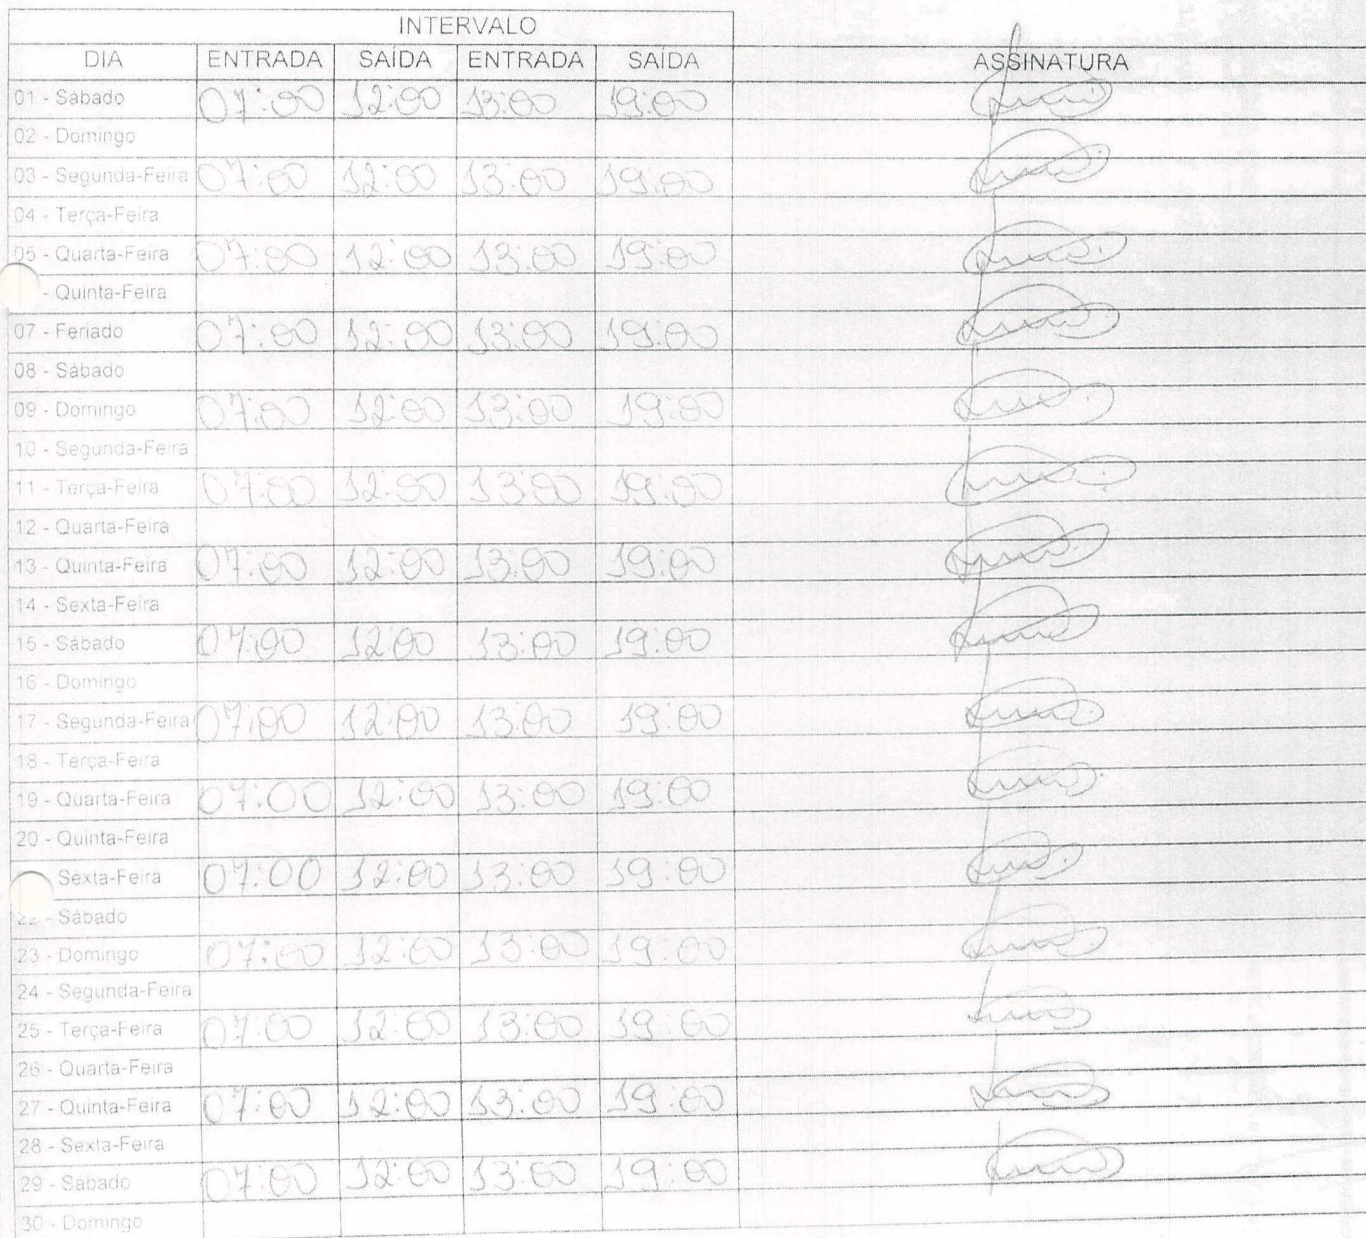 INTERVALO
DIA ENTRADA SAÍDA ENTRADA SAÍDA ASSINATURA
01 - Sábado 07:00 12:00 13:00 19:00
02 - Domingo
03 - Segunda-Feira 07:00 12:00 13:00 19:00
04 - Terça-Feira
05 - Quarta-Feira 07:00 12:00 13:00 19:00
- Quinta-Feira
07 - Feriado 07:00 12:00 13:00 19:00
08 - Sábado
09 - Domingo 07:00 12:00 13:00 19:00
10 - Segunda-Feira
11 - Terça-Feira 07:00 12:00 13:00 19:00
12 - Quarta-Feira
13 - Quinta-Feira 07:00 12:00 13:00 19:00
14 - Sexta-Feira
15 - Sábado 07:00 12:00 13:00 19:00
16 - Domingo
17 - Segunda-Feira 07:00 12:00 13:00 19:00
18 - Terça-Feira
19 - Quarta-Feira 07:00 12:00 13:00 19:00
20 - Quinta-Feira
Sexta-Feira 07:00 12:00 13:00 19:00
22 - Sábado
23 - Domingo 07:00 12:00 13:00 19:00
24 - Segunda-Feira
25 - Terça-Feira 07:00 12:00 13:00 19:00
26 - Quarta-Feira
27 - Quinta-Feira 07:00 12:00 13:00 19:00
28 - Sexta-Feira
29 - Sábado 07:00 12:00 13:00 19:00
30 - Domingo